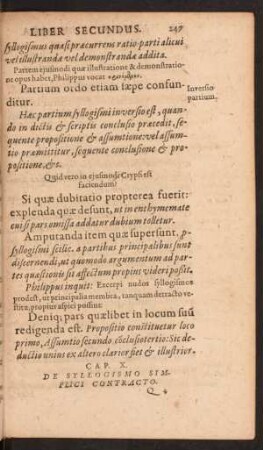 LIBER SECUNDUS. 247
syllogismus quasi præcurrens ratio parti alicui
vel illustrandæ vel demonstrandæ addita.
Partem ejusmodi quæ illustratione & demonstratio-
ne opus habet, Philippus vocat
Partium ordo etiam sæpe confun-
ditur.
Inversio
partium.
Hæc partium syllogismi inversio est, quan-
do in dictis & scriptis conclusio præcedit, se-
quente propositione & assumtione: vel assum-
tio præmittitur, sequente conclusione & pro-
positione, &c.
Quid vero in ejusmodi Crypsi est
faciendum?
Si quæ dubitatio propterea fuerit:
explenda quæ desunt, ut in enthymemate
cui si pars omissa addatur dubium tolletur.
Amputanda item quæ supersunt, p-
syllogismi scilic. a partibus principalibus sunt
discernendi, ut quomodo argumentum ad par-
tes quæstionis sit affectum propius videri possit.
Philippus inquit: Excerpi nudos syllogismos
prodest, ut principalia membra, tanquam detracto ve-
stitu, propius aspici possint.
Deniq; pars quælibet in locum suū
redigenda est. Propositio constituetur loco
primo, Assumtio secundo, cōclusio tertio: Sic de-
ductio unius ex altero clarior fiet & illustrior.
CAP. X.
DE SYLLOGISMO SIM-
PLICI CONTRACTO.
Q